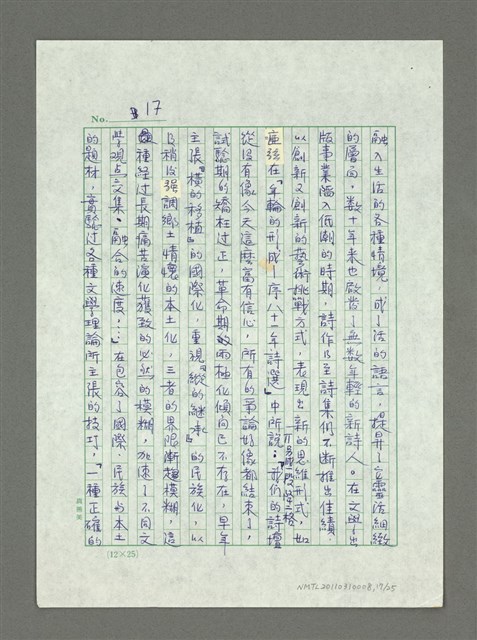 No. 17
融入生活的各種情境，成了活的語言，提昇了靈活細緻
的層面，數十年來也啟普了無數年輕的新詩人。在文學出
版事業陷入低潮的時期，詩作乃至詩集仍不斷推出佳績，
以創新又創新的藝術挑戰方式，表現出新的思維形式，如
瘂弦在「年輪的形成」序八十一年詩選」中所說：「我們的詩壇
另起一段降二格
從沒有像今天這麼富有信心，所有的爭論好像都結束了，
試驗期的矯枉過正，革命期的兩極化傾向已不存在，早年
主張『橫的移植』的國際化，重視『縱的繼承』的民族化，以
及稍後強調鄉土情懷的本土化，三者的界限漸趨模糊，這
種經过長期痛苦演化獲致的必然的模糊，加速了不同文
學观点交集、融合的速度，…」在包容了國際、民族、本土
的題材，實驗过各種文學理論所主張的技巧，「一種正確的
(12×25)
NMTL20110310008,17/25